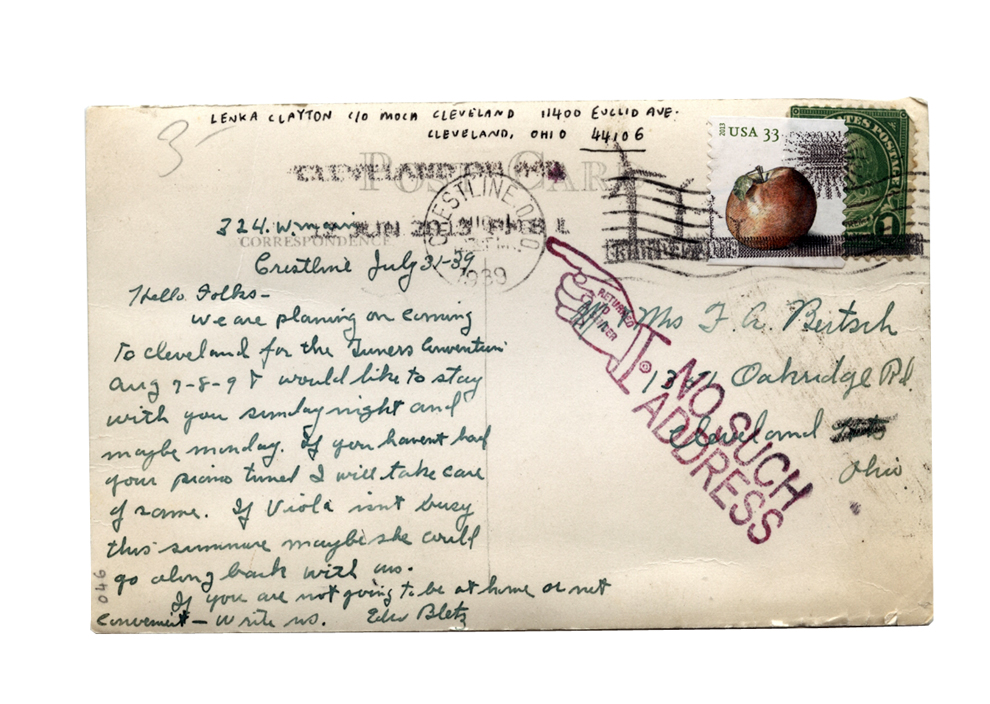 LENKA CLAYTON C/O MOCA CLEVELAND 11400 EUCLID AVE.
CLEVELAND, OHIO 44106
POST CARD
CLEVELAND OH
JUN 2013 PM 8 L
CRESTLINE, O.
1939
2013 USA 33
STATES POSTAGE
1
324. W
CORRESPONDENCE
Crestline July 31-39
Hello Folks-
We are planing on coming
to cleveland for the Tuners Convention
Aug 7-8-9 & would like to stay
with you sunday night and
maybe monday. If you havent had
your piano tuned I will take care
of same. If Viola isnt busy
this summure maybe she could
go along back with us.
If you are not going to be at home or not
Convenient - Write us. Bletz
046
RETURNED
TO
SENDER
Mrs F. A. Bertsch
Oakridge Rd.
Cleveland
Ohio
NO SUCH
ADDRESS